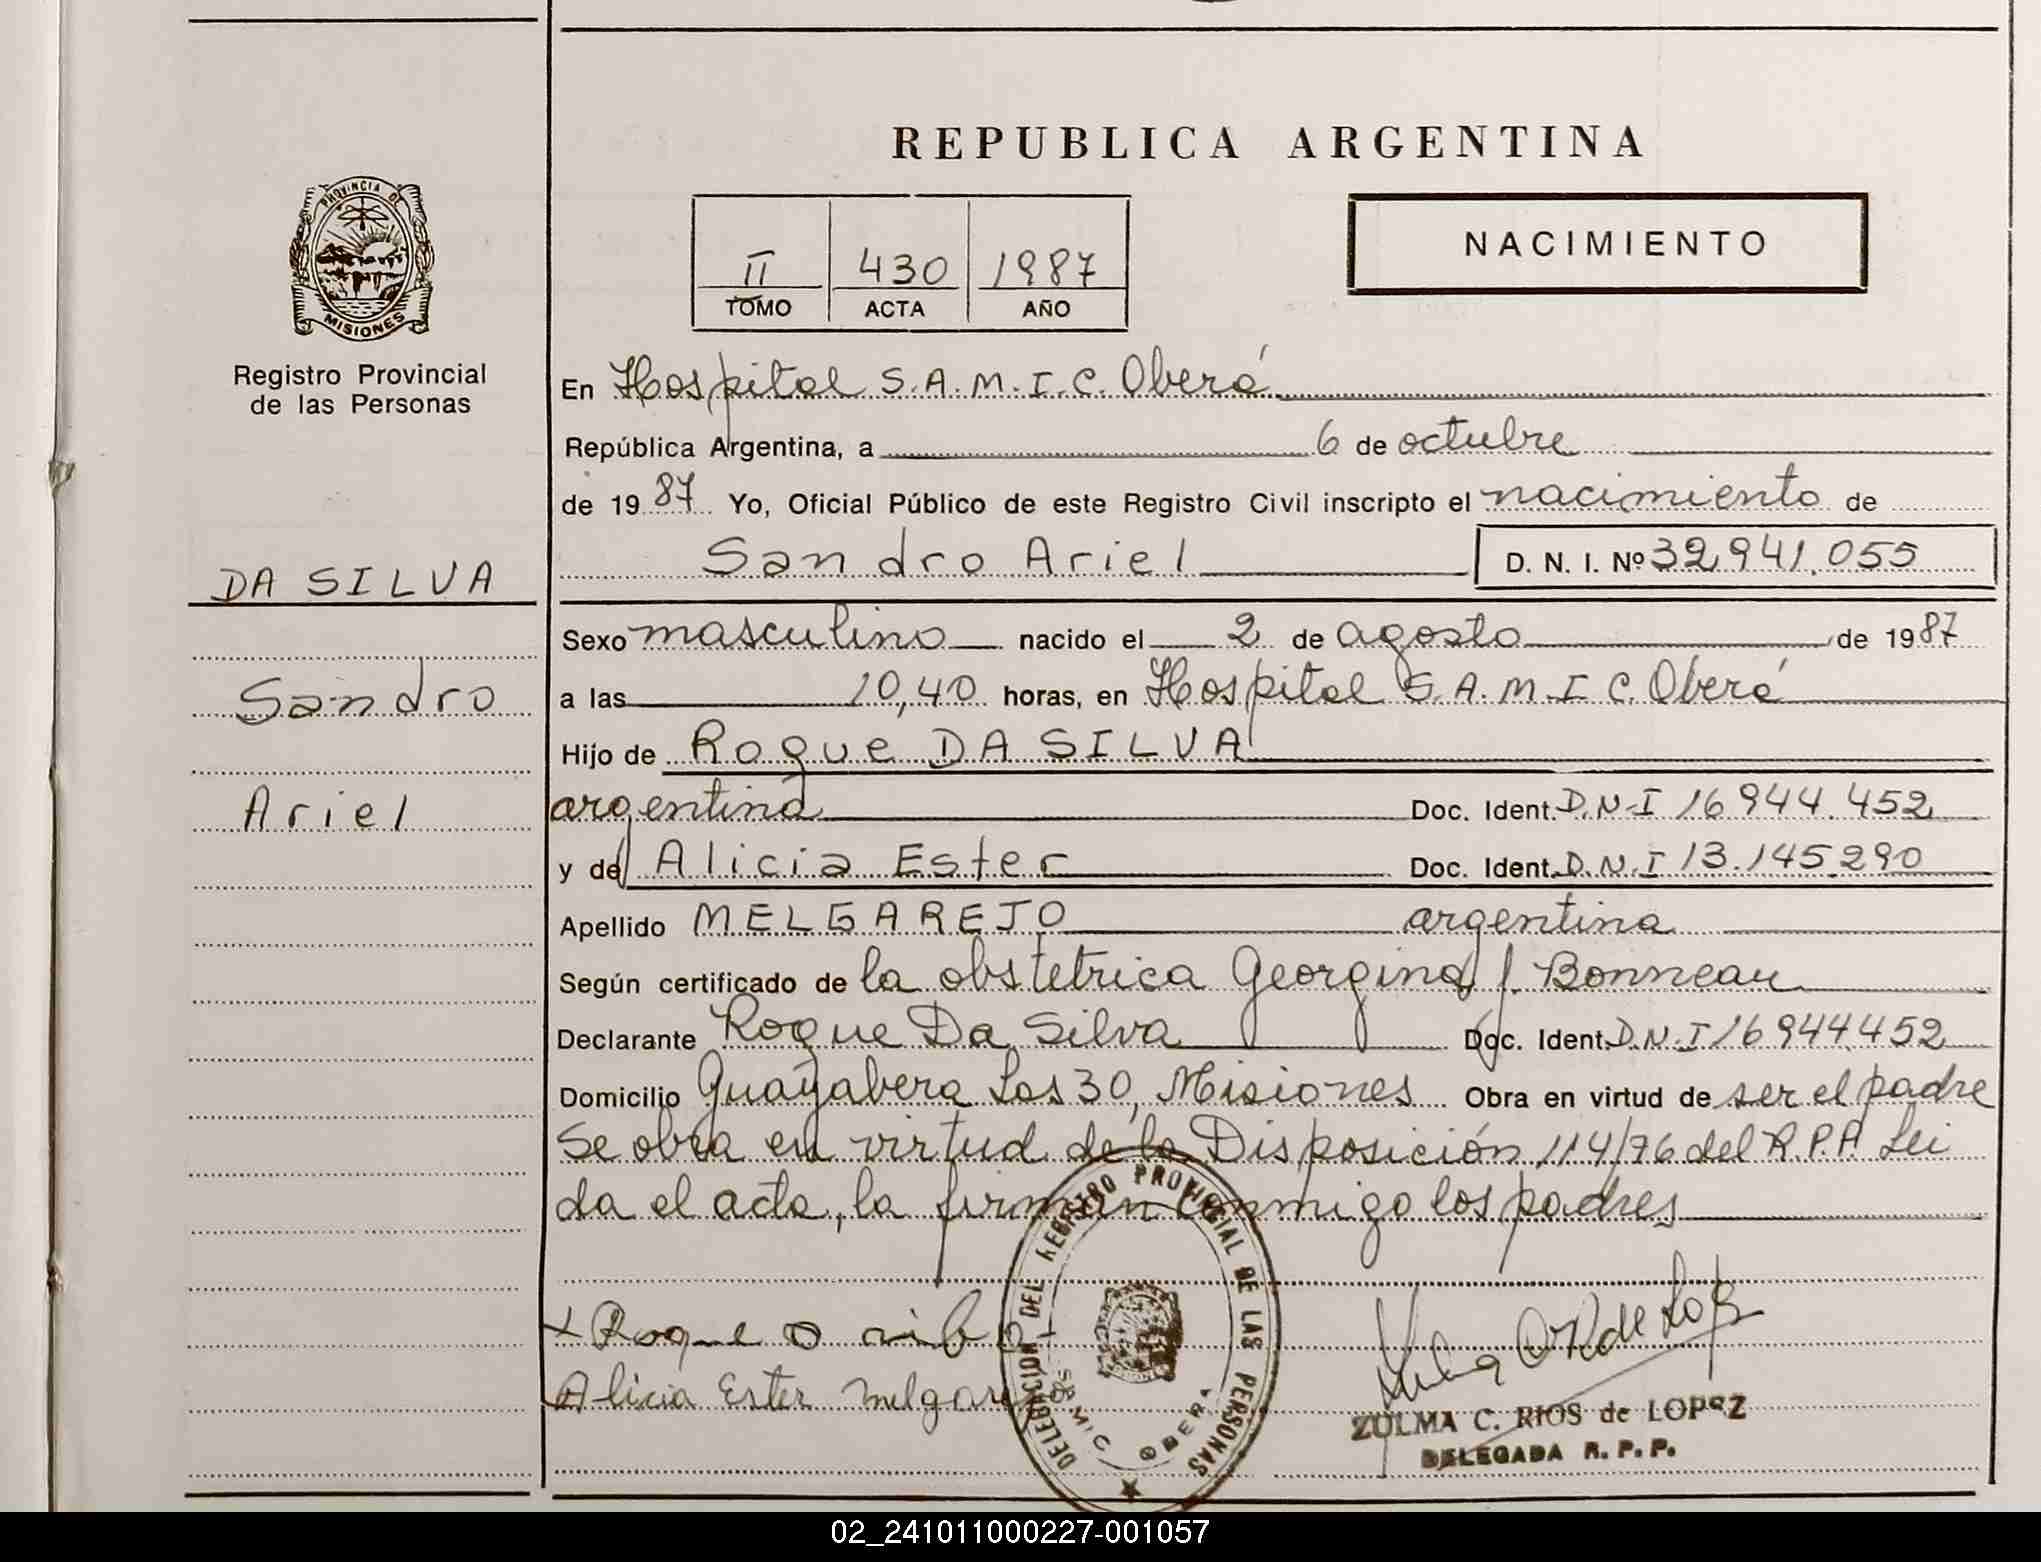 REPUBLICA ARGENTINA
PROVINCIA DE
MISIONES
Registro Provincial
de las Personas
II 430 1987
TOMO ACTA AÑO
NACIMIENTO
DA SILVA
Sandro
Ariel
En Hospital S.A.M.I.C. Oberá
República Argentina, a 6 de octubre
de 1987 Yo, Oficial Público de este Registro Civil inscripto el nacimiento de
Sandro Ariel D. N. I. Nº 32.941.055
Sexo masculino nacido el 2 de agosto de 1987
a las 10,40 horas, en Hospital S.A.M.I.C. Oberá
Hijo de Roque DA SILVA
argentina Doc. Ident. D.N.I 16.944.452
y de Alicia Ester Doc. Ident. D.N.I 13.145.290
Apellido MELGAREJO argentina
Según certificado de la obstetrica Georgina J. Bonneau
Declarante Roque Da Silva Doc. Ident. D.N.I 16.944.452
Domicilio Guayabera Los 30, Misiones Obra en virtud de ser el padre
Se obra en virtud de la Disposición 114/76 del R.P.P. Lei
da el acta, la firman conmigo los padres
Roque
Alicia Ester Melgarejo
DELEGACION DEL REGISTRO PROVINCIAL DE LAS PERSONAS
SAMIC OBERA
ZULMA C. RIOS de LOPEZ
DELEGADA R. P. P.
02_241011000227-001057